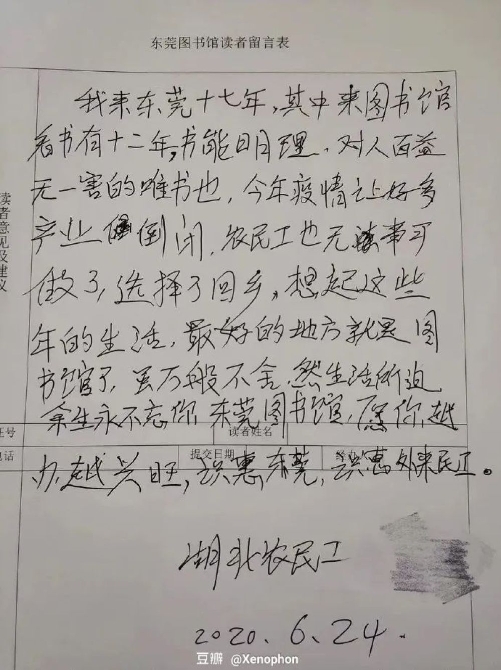 东莞图书馆读者留言表
我来东莞十七年,其中来图书馆
看书有十二年,书能明理、对人百益
无一害的唯书也,今年疫情让好多
产业倒闭,农民工也无事可
做了,选择了回乡,想起这些
年的生活,最好的地方就是图
书馆了,虽万般不舍,然生活所迫
余生永不忘你,东莞图书馆,愿你越
办越兴旺,识惠东莞,识惠外来民工。
读者意见及建议
证号
读者姓名
电话
提交日期
湖北农民工
2020.6.24.
豆瓣 @Xenophon